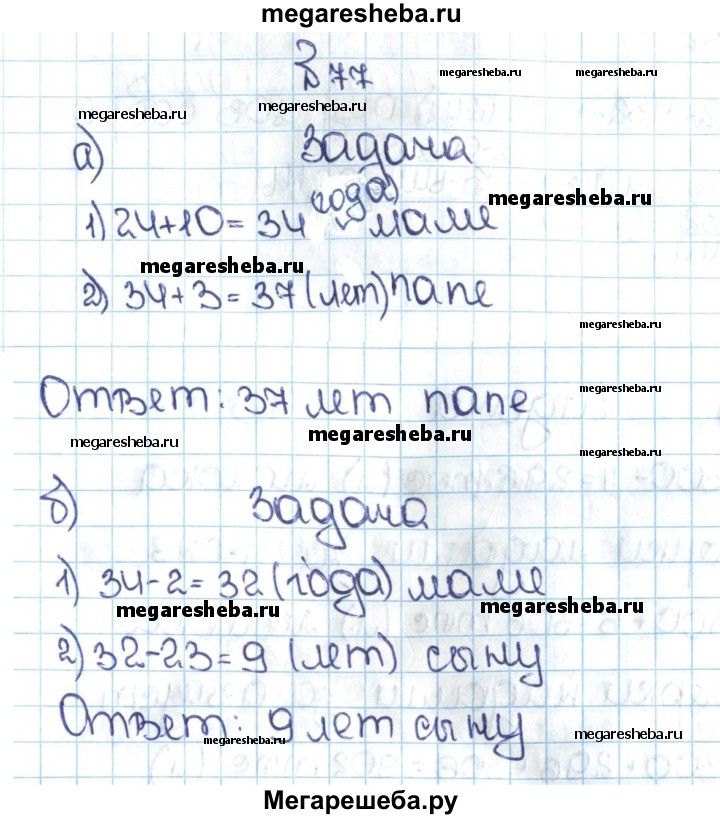 megaresheba.ru
№ 77
megaresheba.ru megaresheba.ru
megaresheba.ru megaresheba.ru
а) Задача
1) 24+10=34 (года) маме
megaresheba.ru
megaresheba.ru
2) 34+3=37 (лет) папе
megaresheba.ru
Ответ: 37 лет папе
megaresheba.ru
megaresheba.ru megaresheba.ru
megaresheba.ru
б) Задача
1) 34-2=32 (года) маме
megaresheba.ru megaresheba.ru
2) 32-23=9 (лет) сыну
Ответ: 9 лет сыну
megaresheba.ru megaresheba.ru
Мегарешеба.ру